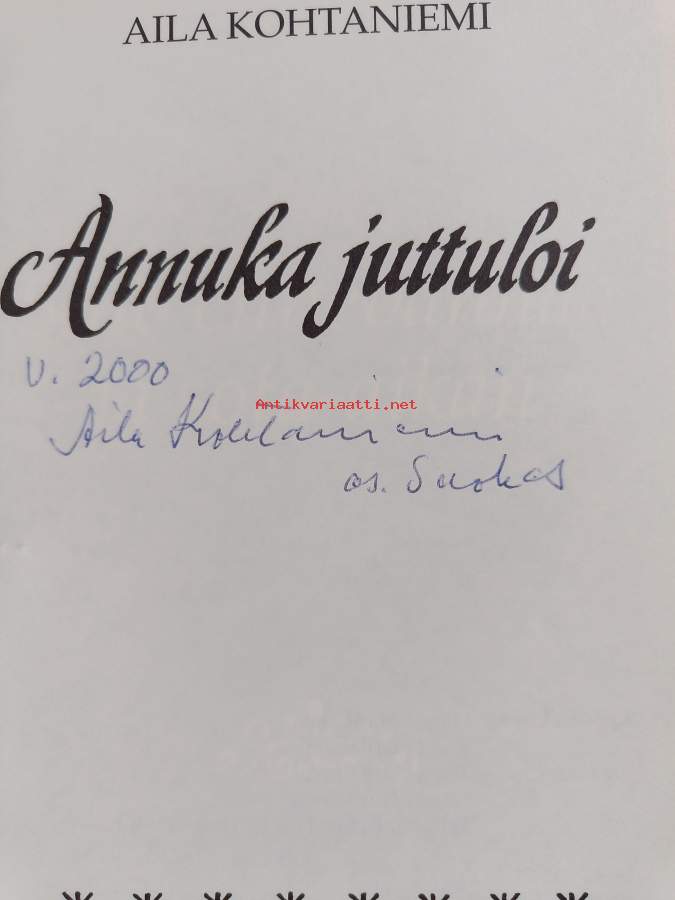 AILA KOHTANIEMI
Annuka juttuloi
v. 2000
Antikvariaatti.net
Aila Kohtaniemi
os. Suokas